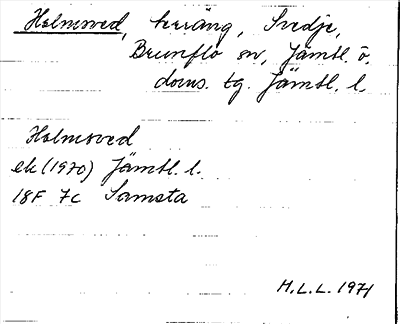 Holmsved, terräng, Svedje,
Brunflo sn, Jämtl. ö.
doms. tg. Jämtl. l.
Holmsved
ek (1970) Jämtl. l.
18F 7c Samsta
H.L.L. 1971